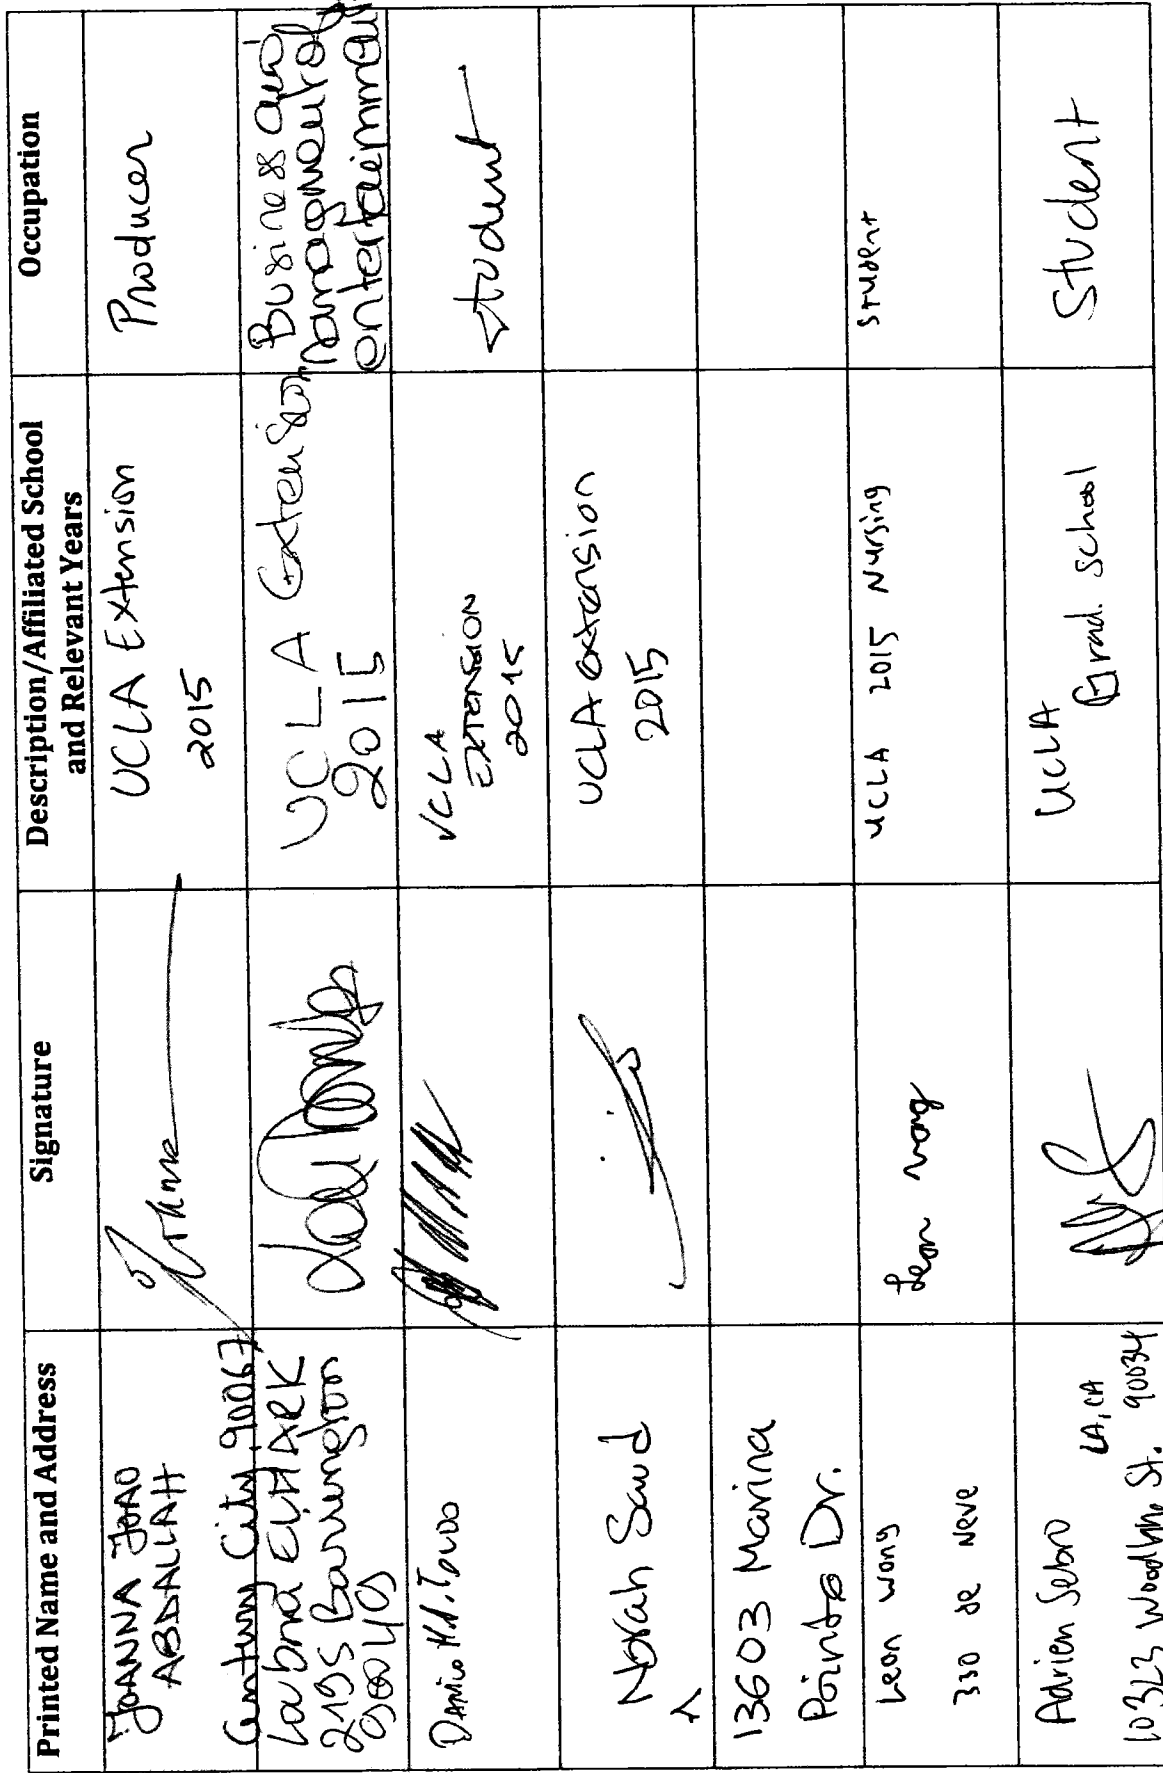 Printed Name and Address
Signature
Description/Affiliated School
and Relevant Years
Occupation
JOANNA JOAO
ABDALLAH
Century City, 90067
UCLA Extension
2015
Producer
Loubna ELHARK
Barrington
90049
UCLA Extension
2015
Business and
management of
entertainment
UCLA
EXTENSION
2015
student
Norah Saud
UCLA extension
2015
13603 Marina
Pointe Dr.
Leon Wong
330 de Neve
Leon Wong
UCLA 2015 Nursing
student
Adrien Sebro
LA, CA
10323 St. 90034
UCLA
Grad. School
Student